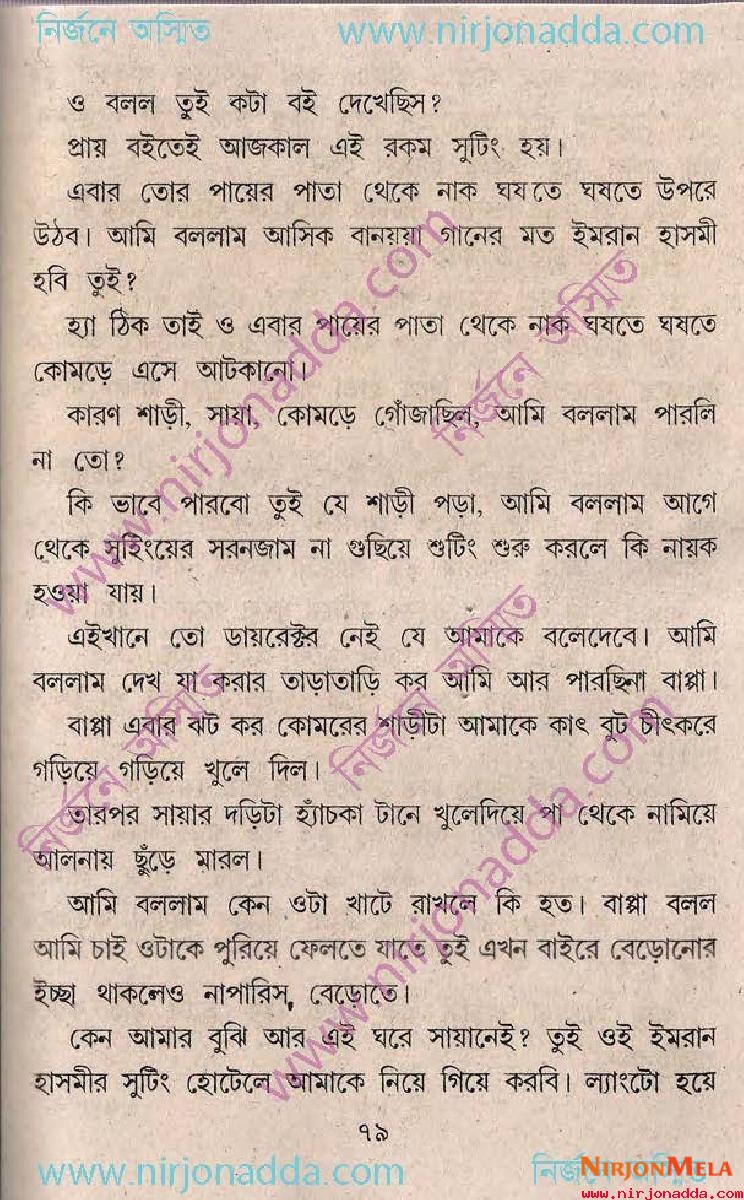 নির্জনে অস্মিত www.nirjonadda.com
ও বলল তুই কটা বই দেখেছিস?
প্রায় বইতেই আজকাল এই রকম সুটিং হয়।
এবার তোর পায়ের পাতা থেকে নাক ঘষতে ঘষতে উপরে
উঠব। আমি বললাম আসিক বানয়য়া গানের মত ইমরান হাসমী
হবি তুই?
হ্যা ঠিক তাই ও এবার পায়ের পাতা থেকে নাক ঘষতে ঘষতে
কোমড়ে এসে আটকানো।
কারণ শাড়ী, সায়া, কোমড়ে গোঁজাছিল, আমি বললাম পারলি
না তো?
কি ভাবে পারবো তুই যে শাড়ী পড়া, আমি বললাম আগে
থেকে সুহিংয়ের সরনজাম না গুছিয়ে শুটিং শুরু করলে কি নায়ক
হওয়া যায়।
এইখানে তো ডায়রেক্টর নেই যে আমাকে বলেদেবে। আমি
বললাম দেখ যা করার তাড়াতাড়ি কব আমি আর পারছিনা বাপ্পা।
বাপ্পা এবার ঝট কর কোমরের শাড়ীটা আমাকে কাৎ বুট চীৎকরে
গড়িয়ে গড়িয়ে খুলে দিল।
তারপর সায়ার দড়িটা হ্যাঁচকা টানে খুলেদিয়ে পা থেকে নামিয়ে
আলনায় ছুঁড়ে মারল।
আমি বললাম কেন ওটা খাটে রাখলে কি হত। বাপ্পা বলল
আমি চাই ওটাকে পুরিয়ে ফেলতে যাতে তুই এখন বাইরে বেড়োনোর
ইচ্ছা থাকলেও নাপারিস, বেড়োতে।
কেন আমার বুঝি আর এই ঘরে সায়ানেই? তুই ওই ইমরান
হাসমীর সুটিং হোটেলে আমাকে নিয়ে গিয়ে করবি। ল্যাংটো হয়ে
৭৯
www.nirjonadda.com নির্জনে অস্মিত
NIRJONMELA
www.nirjonadda.com